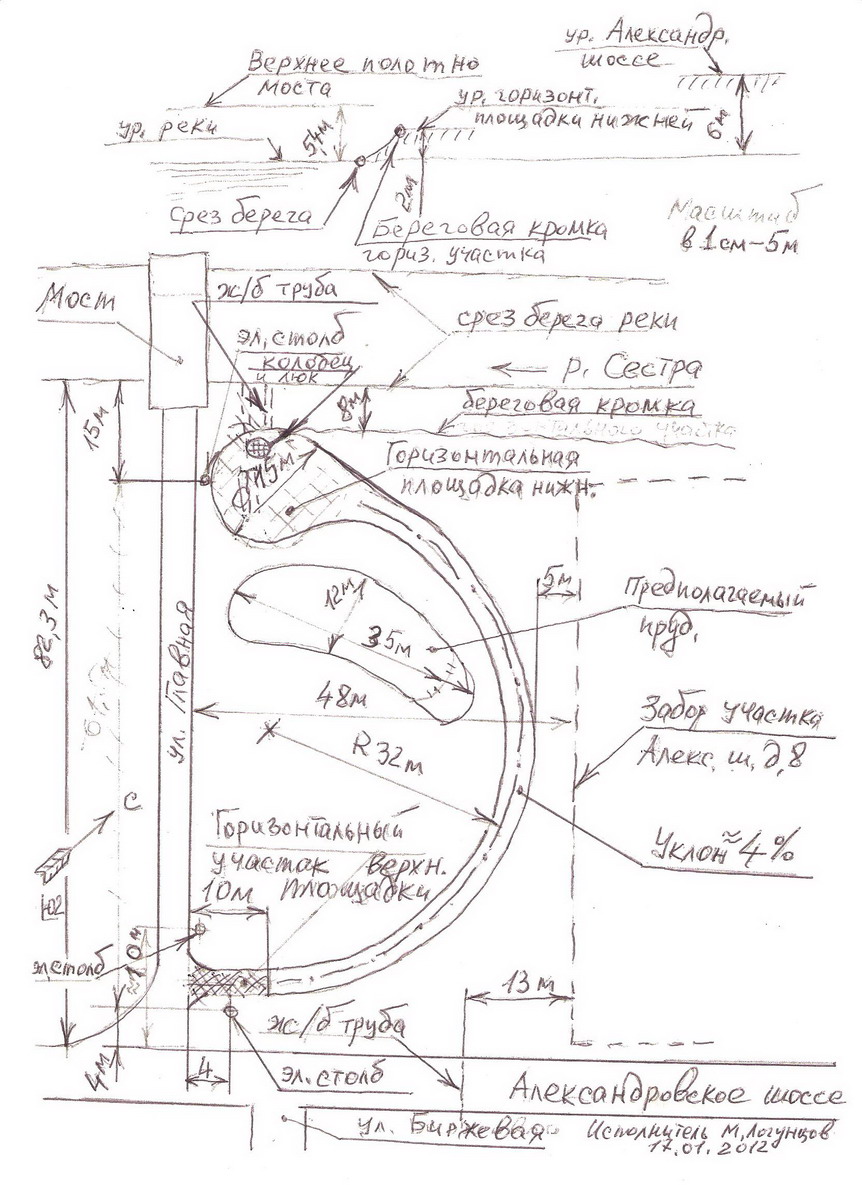 ур. Александр.
шоссе
Верхнее полотно
моста
ур. горизонт.
площадки нижней
ур. реки
5,4м
6м
2м
срез берега
Береговая кромка
гориз. участка
Масштаб
в 1см-5м
Мост
ж/б труба
срез берега реки
эл. столб
колобец
и люк
р. Сестра
8м
береговая кромка
15м
Горизонтальная
площадка нижн.
Ф 15м
5м
Предполагаемый
пруд.
12м
35м
82,3м
ул. Главная
48м
Забор участка
Алекс. ш. д. 8
R32м
С
Уклон ≈ 4%
Горизонтальный
участок верхн.
10м площадки
Ю
эл. столб
≈10м
13м
ж/б труба
4м
4
эл. столб
Александровское шоссе
ул. Биржевая
Исполнитель М. Логунцов
17.01.2012